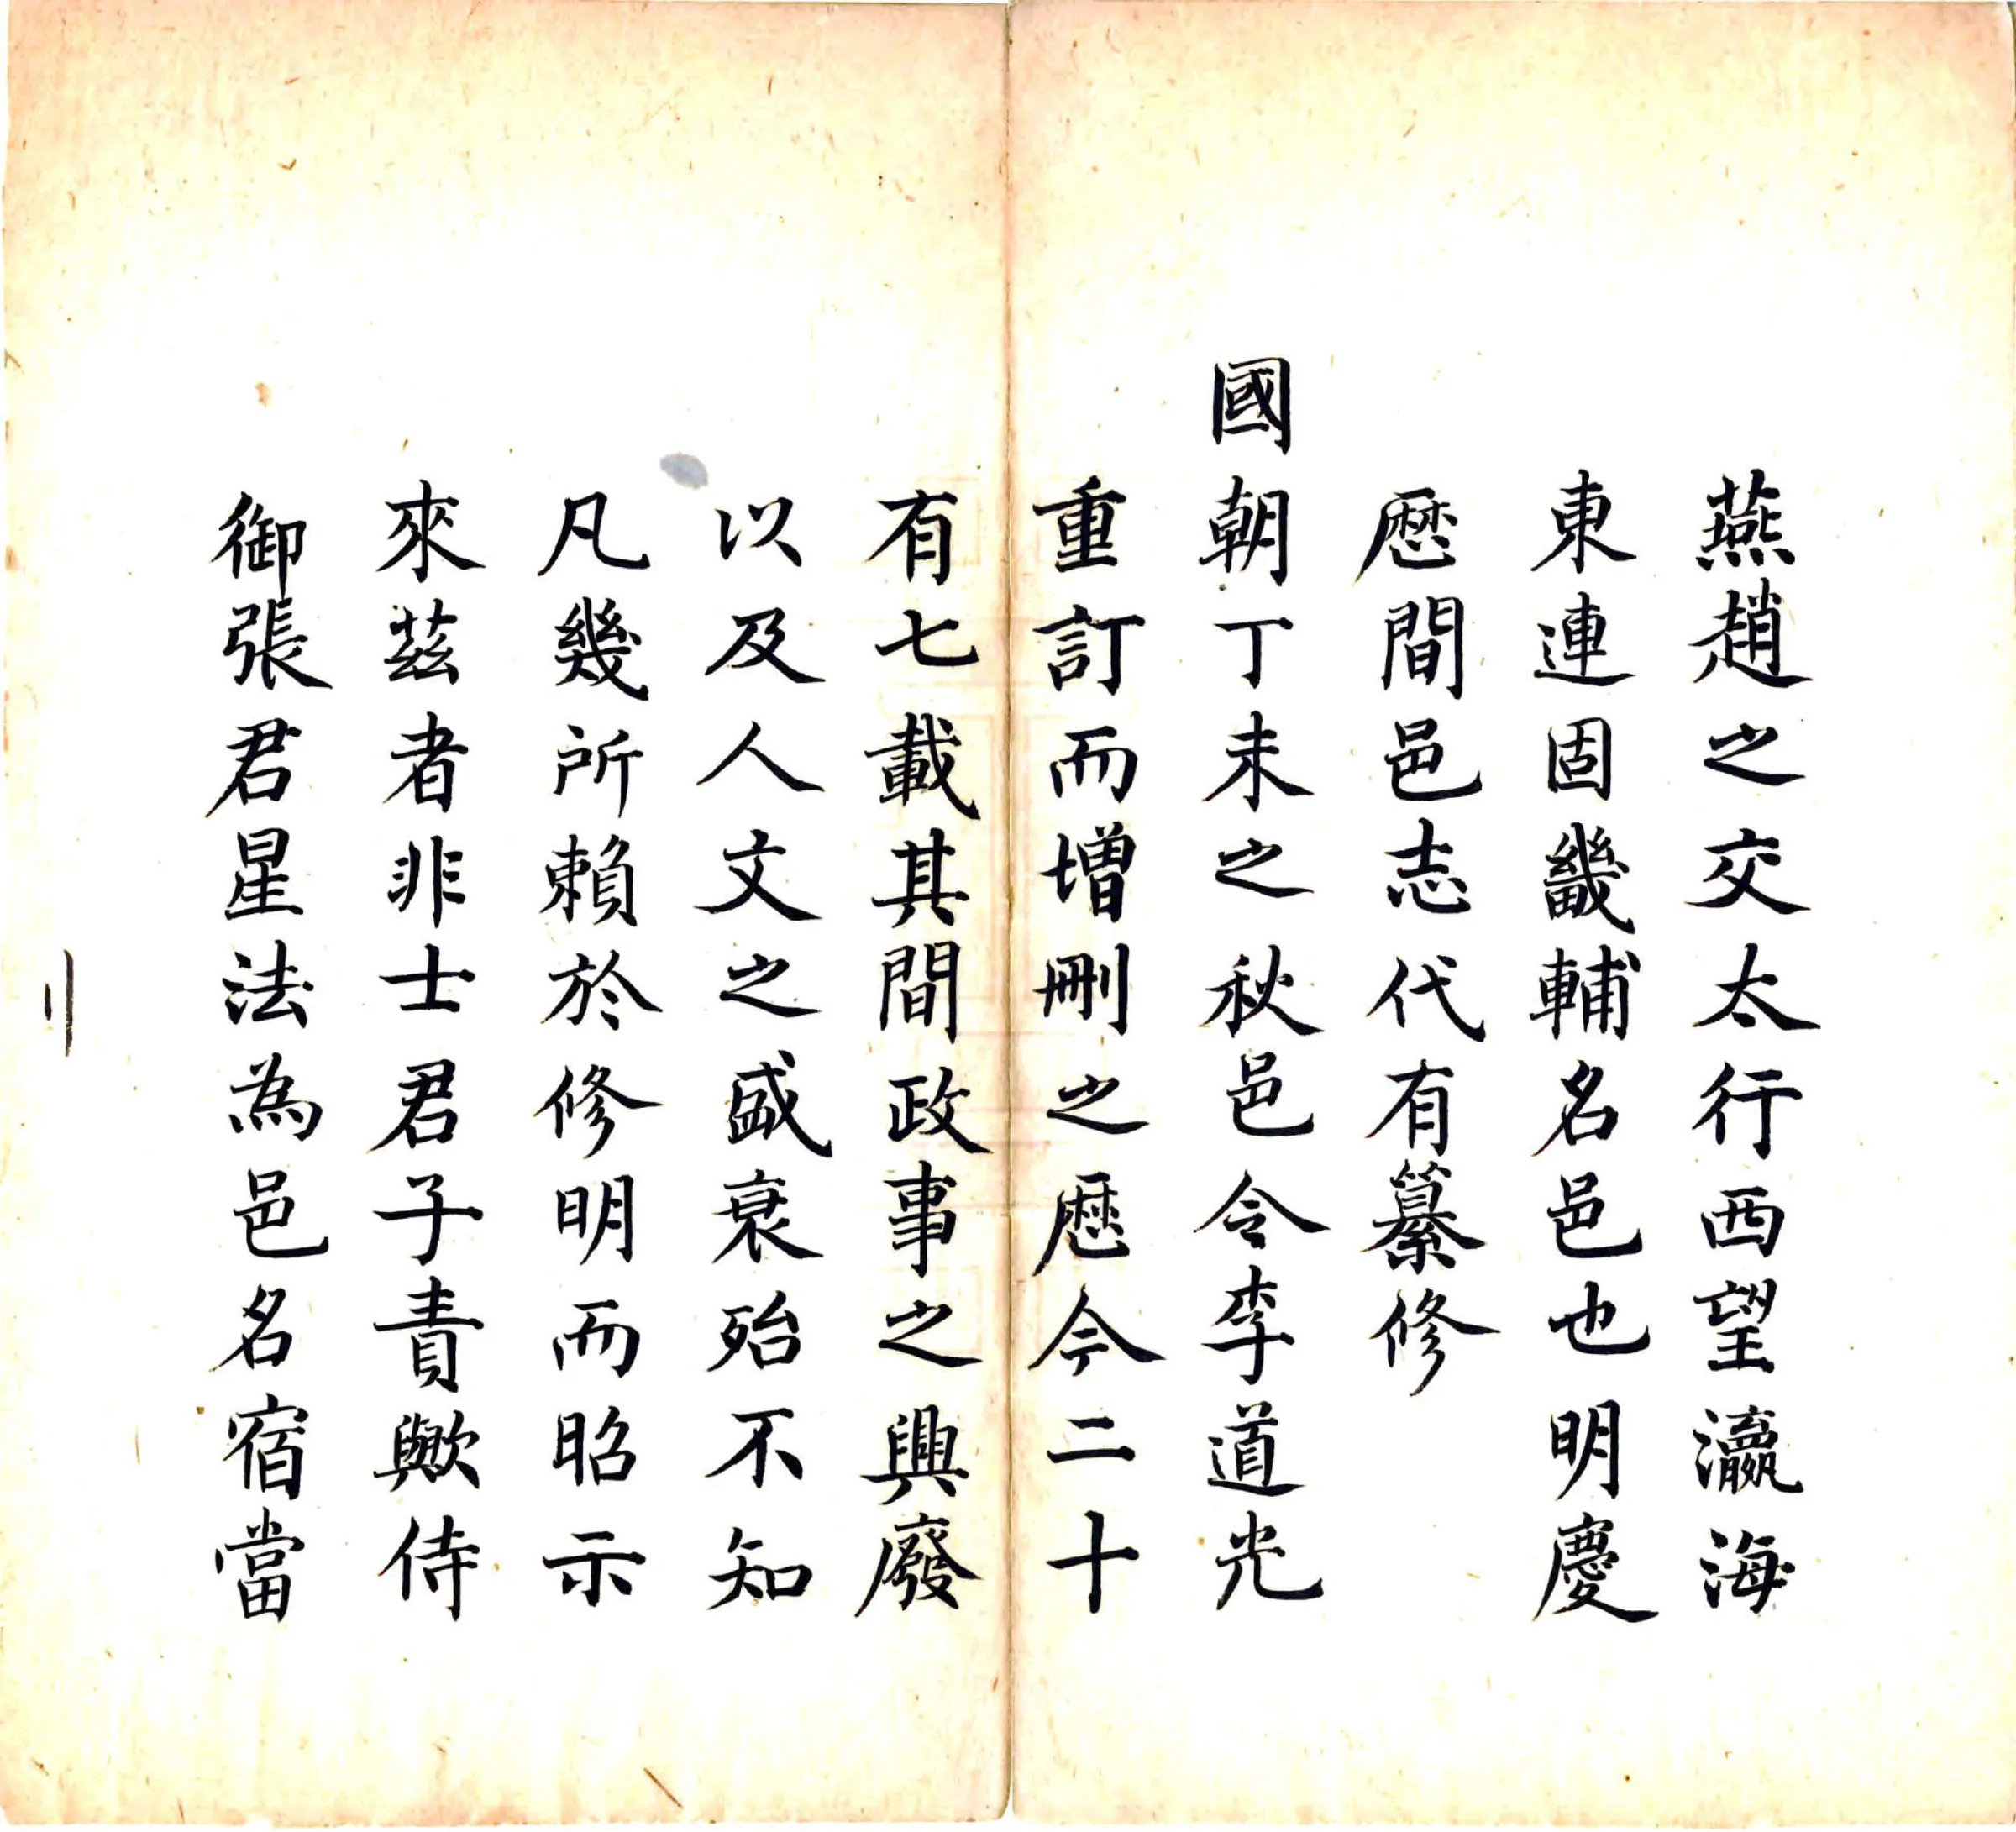 燕趙之交太行西望瀛海
東連固畿輔名邑也明慶
厯間邑志代有纂修
國朝丁未之秋邑令李道光
重訂而增刪之厯今二十
有七載其間政事之興廢
以及人文之盛衰殆不知
凡幾所賴於修明而昭示
來茲者非士君子責歟侍
御張君星法為邑名宿當